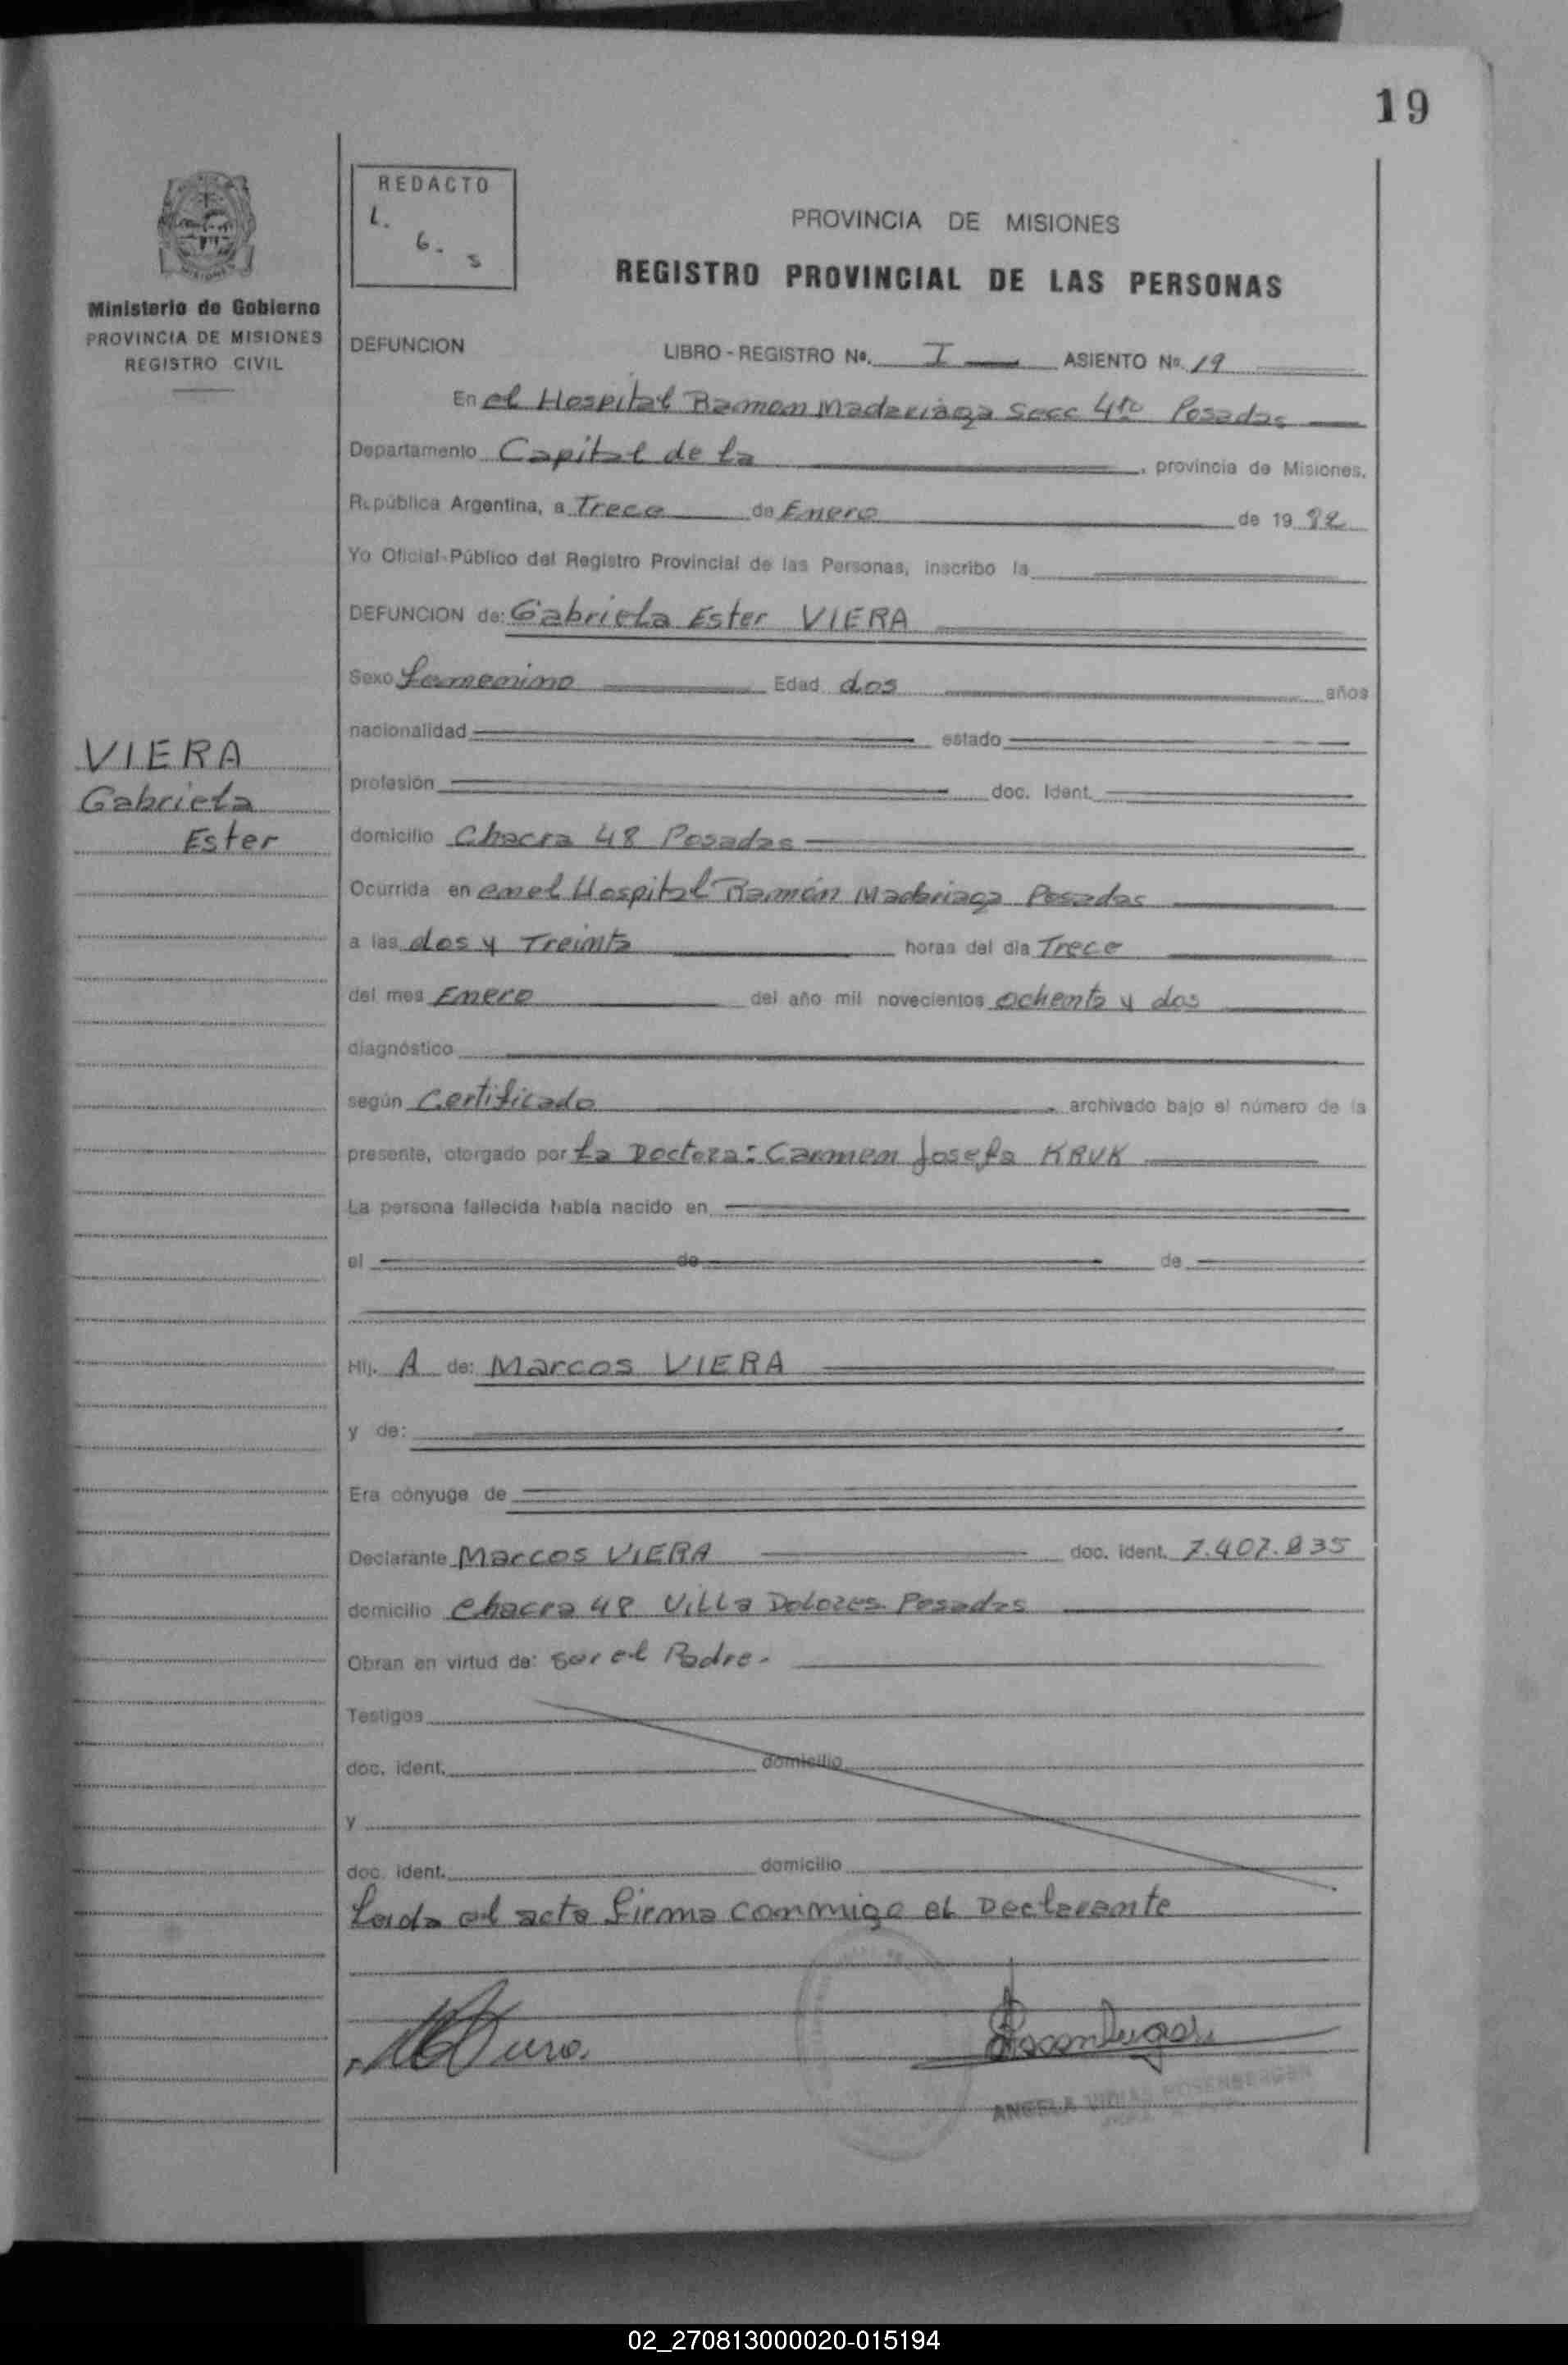 19
REDACTO
L.
6. S
PROVINCIA DE MISIONES
REGISTRO PROVINCIAL DE LAS PERSONAS
Ministerio de Gobierno
PROVINCIA DE MISIONES
REGISTRO CIVIL
DEFUNCION LIBRO - REGISTRO Nº. I ASIENTO Nº. 19
En el Hospital Ramon Madariaga Secc 4ta Posadas
Departamento Capital de la , provincia de Misiones.
República Argentina, a Trece de Enero de 19 82
Yo Oficial Público del Registro Provincial de las Personas, inscribo la
DEFUNCION de: Gabriela Ester VIERA
Sexo femenino Edad dos años
nacionalidad estado
VIERA
Gabriela
Ester
profesión doc. Ident.
domicilio Chacra 48 Posadas
Ocurrida en en el Hospital Ramón Madariaga Posadas
a las dos y Treinta horas del día Trece
del mes Enero del año mil novecientos ochenta y dos
diagnóstico
según Certificado , archivado bajo el número de la
presente, otorgado por La Doctora: Carmen Josefa KRUK
La persona fallecida había nacido en
el de de
Hij. A de: Marcos VIERA
y de:
Era cónyuge de
Declarante Marcos VIERA doc. ident. 7.407.835
domicilio Chacra 48 Villa Dolores Posadas
Obran en virtud de: ser el Padre.
Testigos
doc. ident. domicilio
y
doc. ident. domicilio
Leida el acta firma conmigo el Declarante
ANGELA ROSENBERGER
02_270813000020-015194